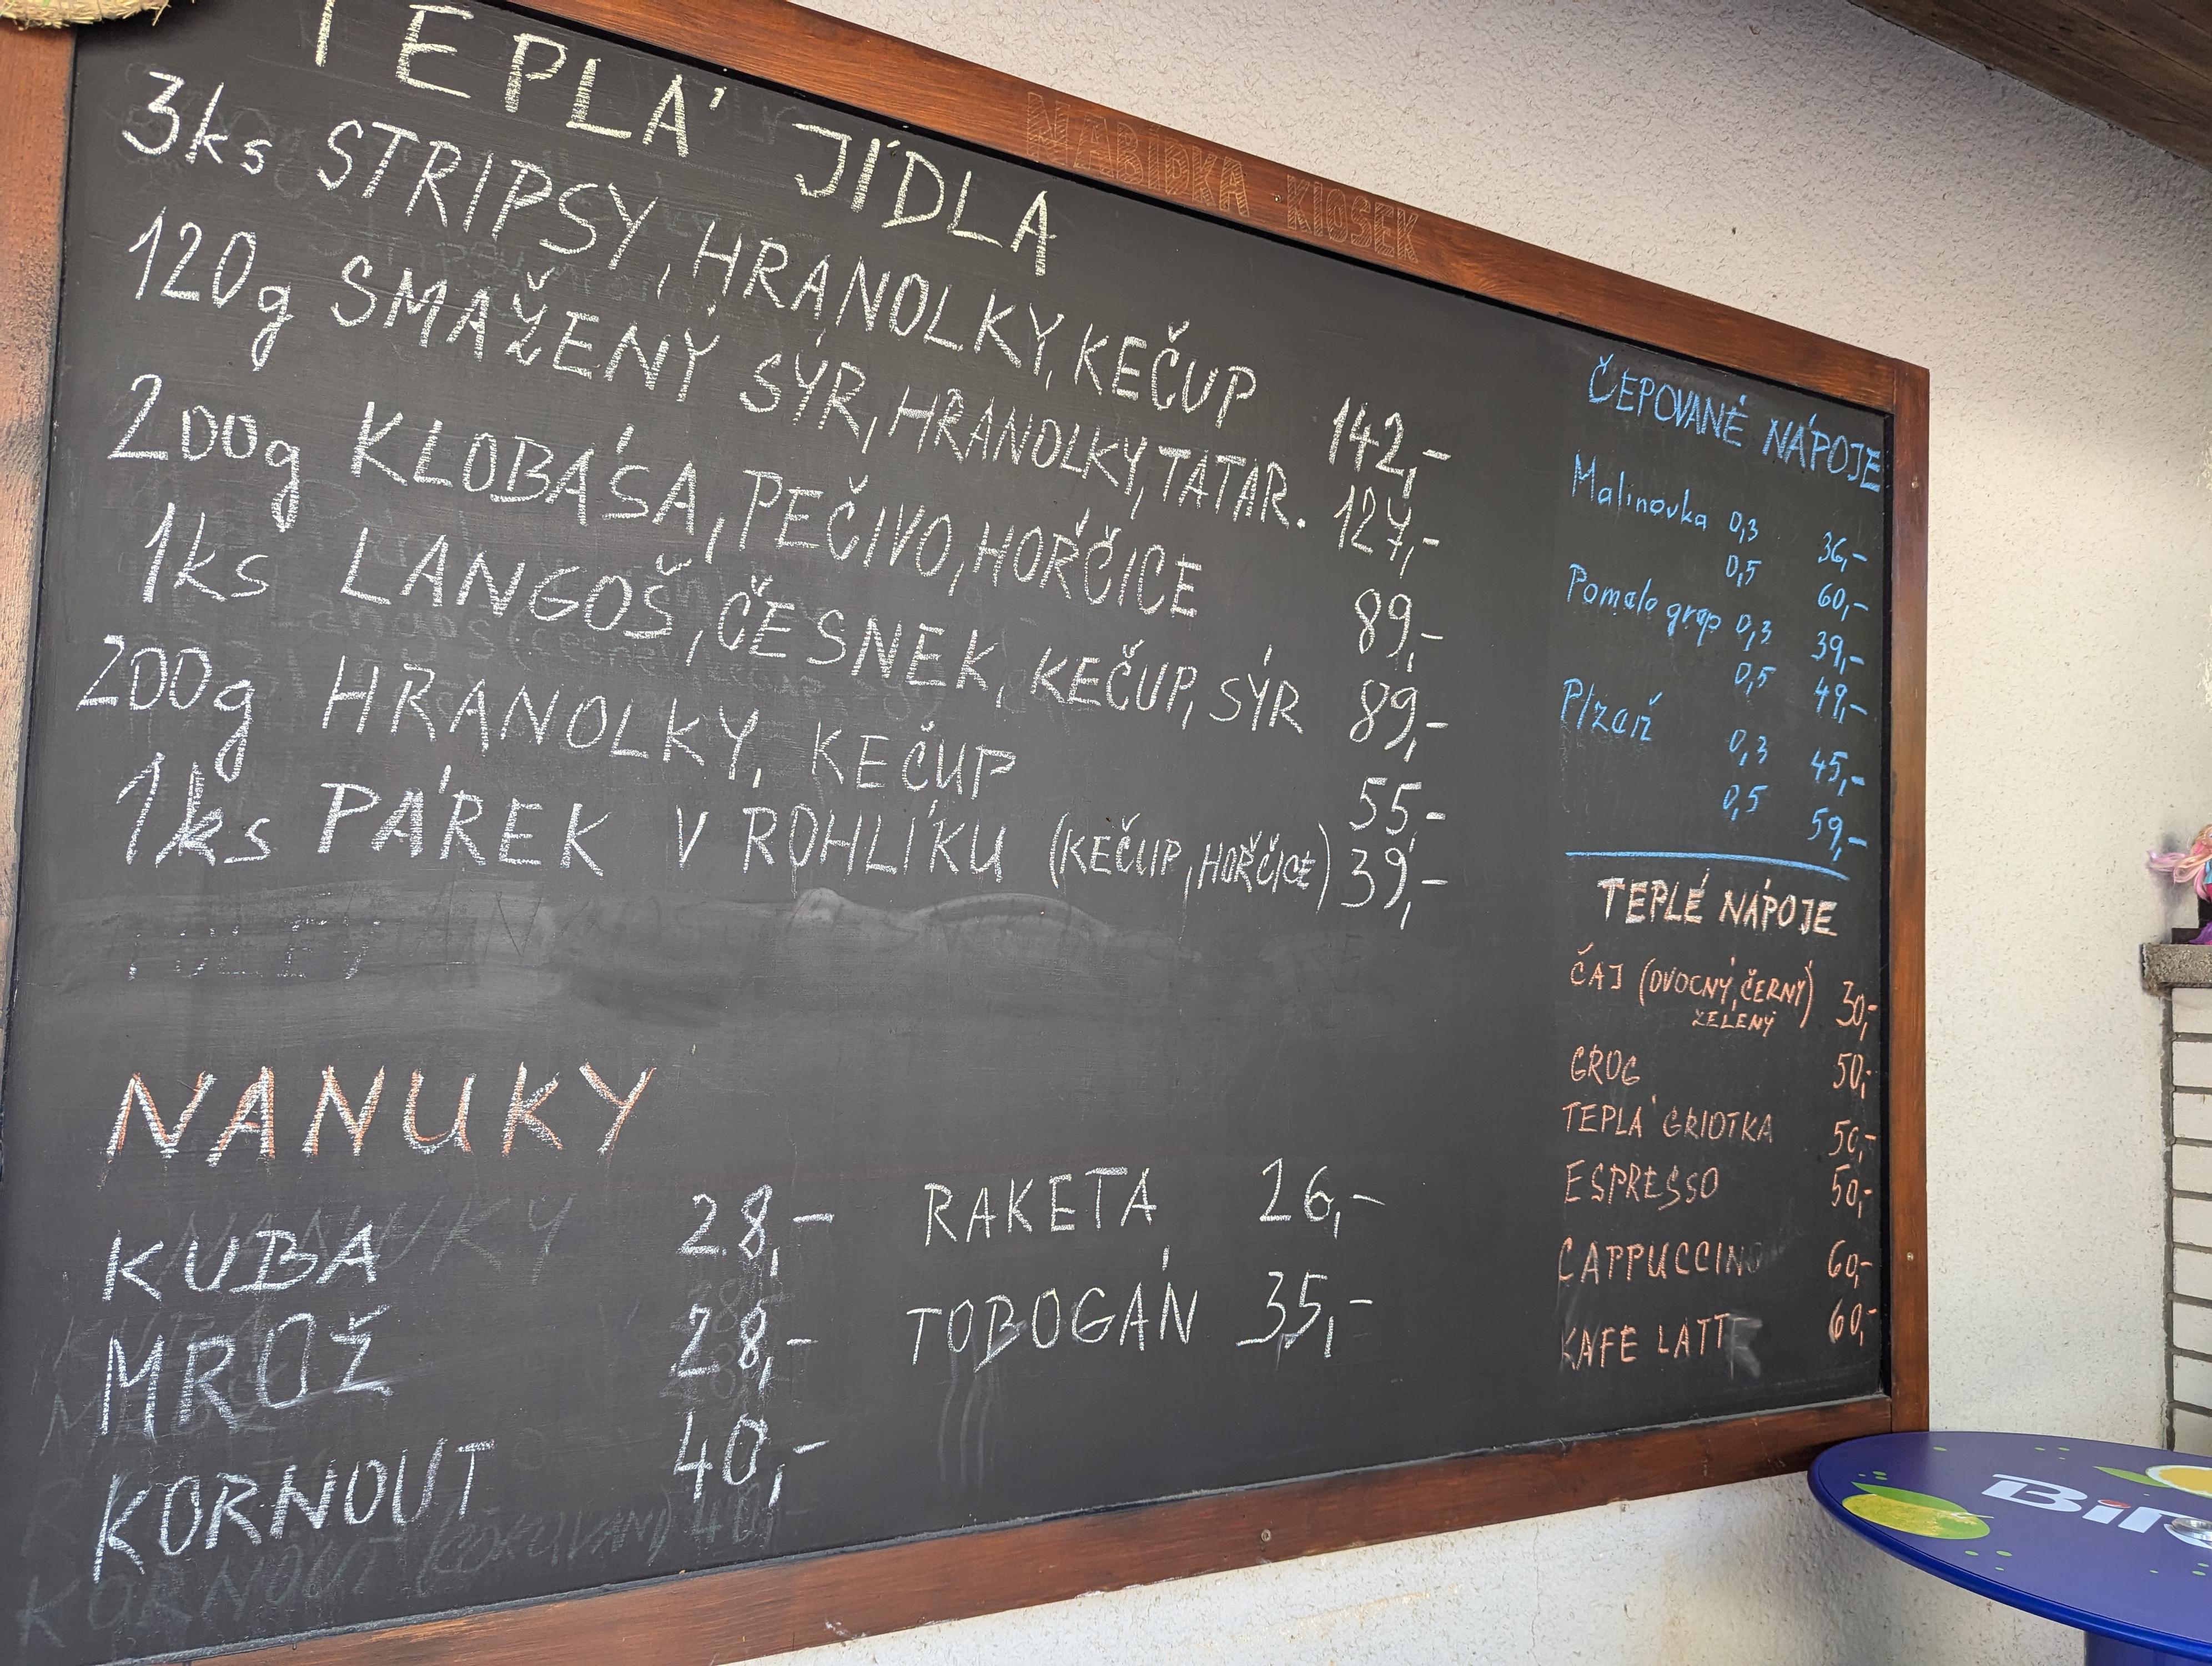 TEPLÁ JÍDLA
NABÍDKA KIOSEK
3ks STRIPSY, HRANOLKY, KEČUP 142,-
120g SMAŽENÝ SÝR, HRANOLKY, TATAR. 127,-
200g KLOBÁSA, PEČIVO, HOŘČICE 89,-
1ks LANGOŠ, ČESNEK, KEČUP, SÝR 89,-
200g HRANOLKY, KEČUP 55,-
1ks PÁREK V ROHLÍKU (KEČUP, HOŘČICE) 39,-
NANUKY
KUBA 28,-
MROŽ 28,-
KORNOUT 40,-
RAKETA 26,-
TOBOGÁN 35,-
ČEPOVANÉ NÁPOJE
Malinovka 0,3 36,-
0,5 60,-
Pomelo grep 0,3 39,-
0,5 49,-
Plzeň 0,3 45,-
0,5 59,-
TEPLÉ NÁPOJE
ČAJ (OVOCNÝ, ČERNÝ) 30,-
ZELENÝ
GROG 50,-
TEPLÁ GRIOTKA 50,-
ESPRESSO 50,-
CAPPUCCINO 60,-
KAFE LATTE 60,-
NANUKY
KORNOUT 40,-